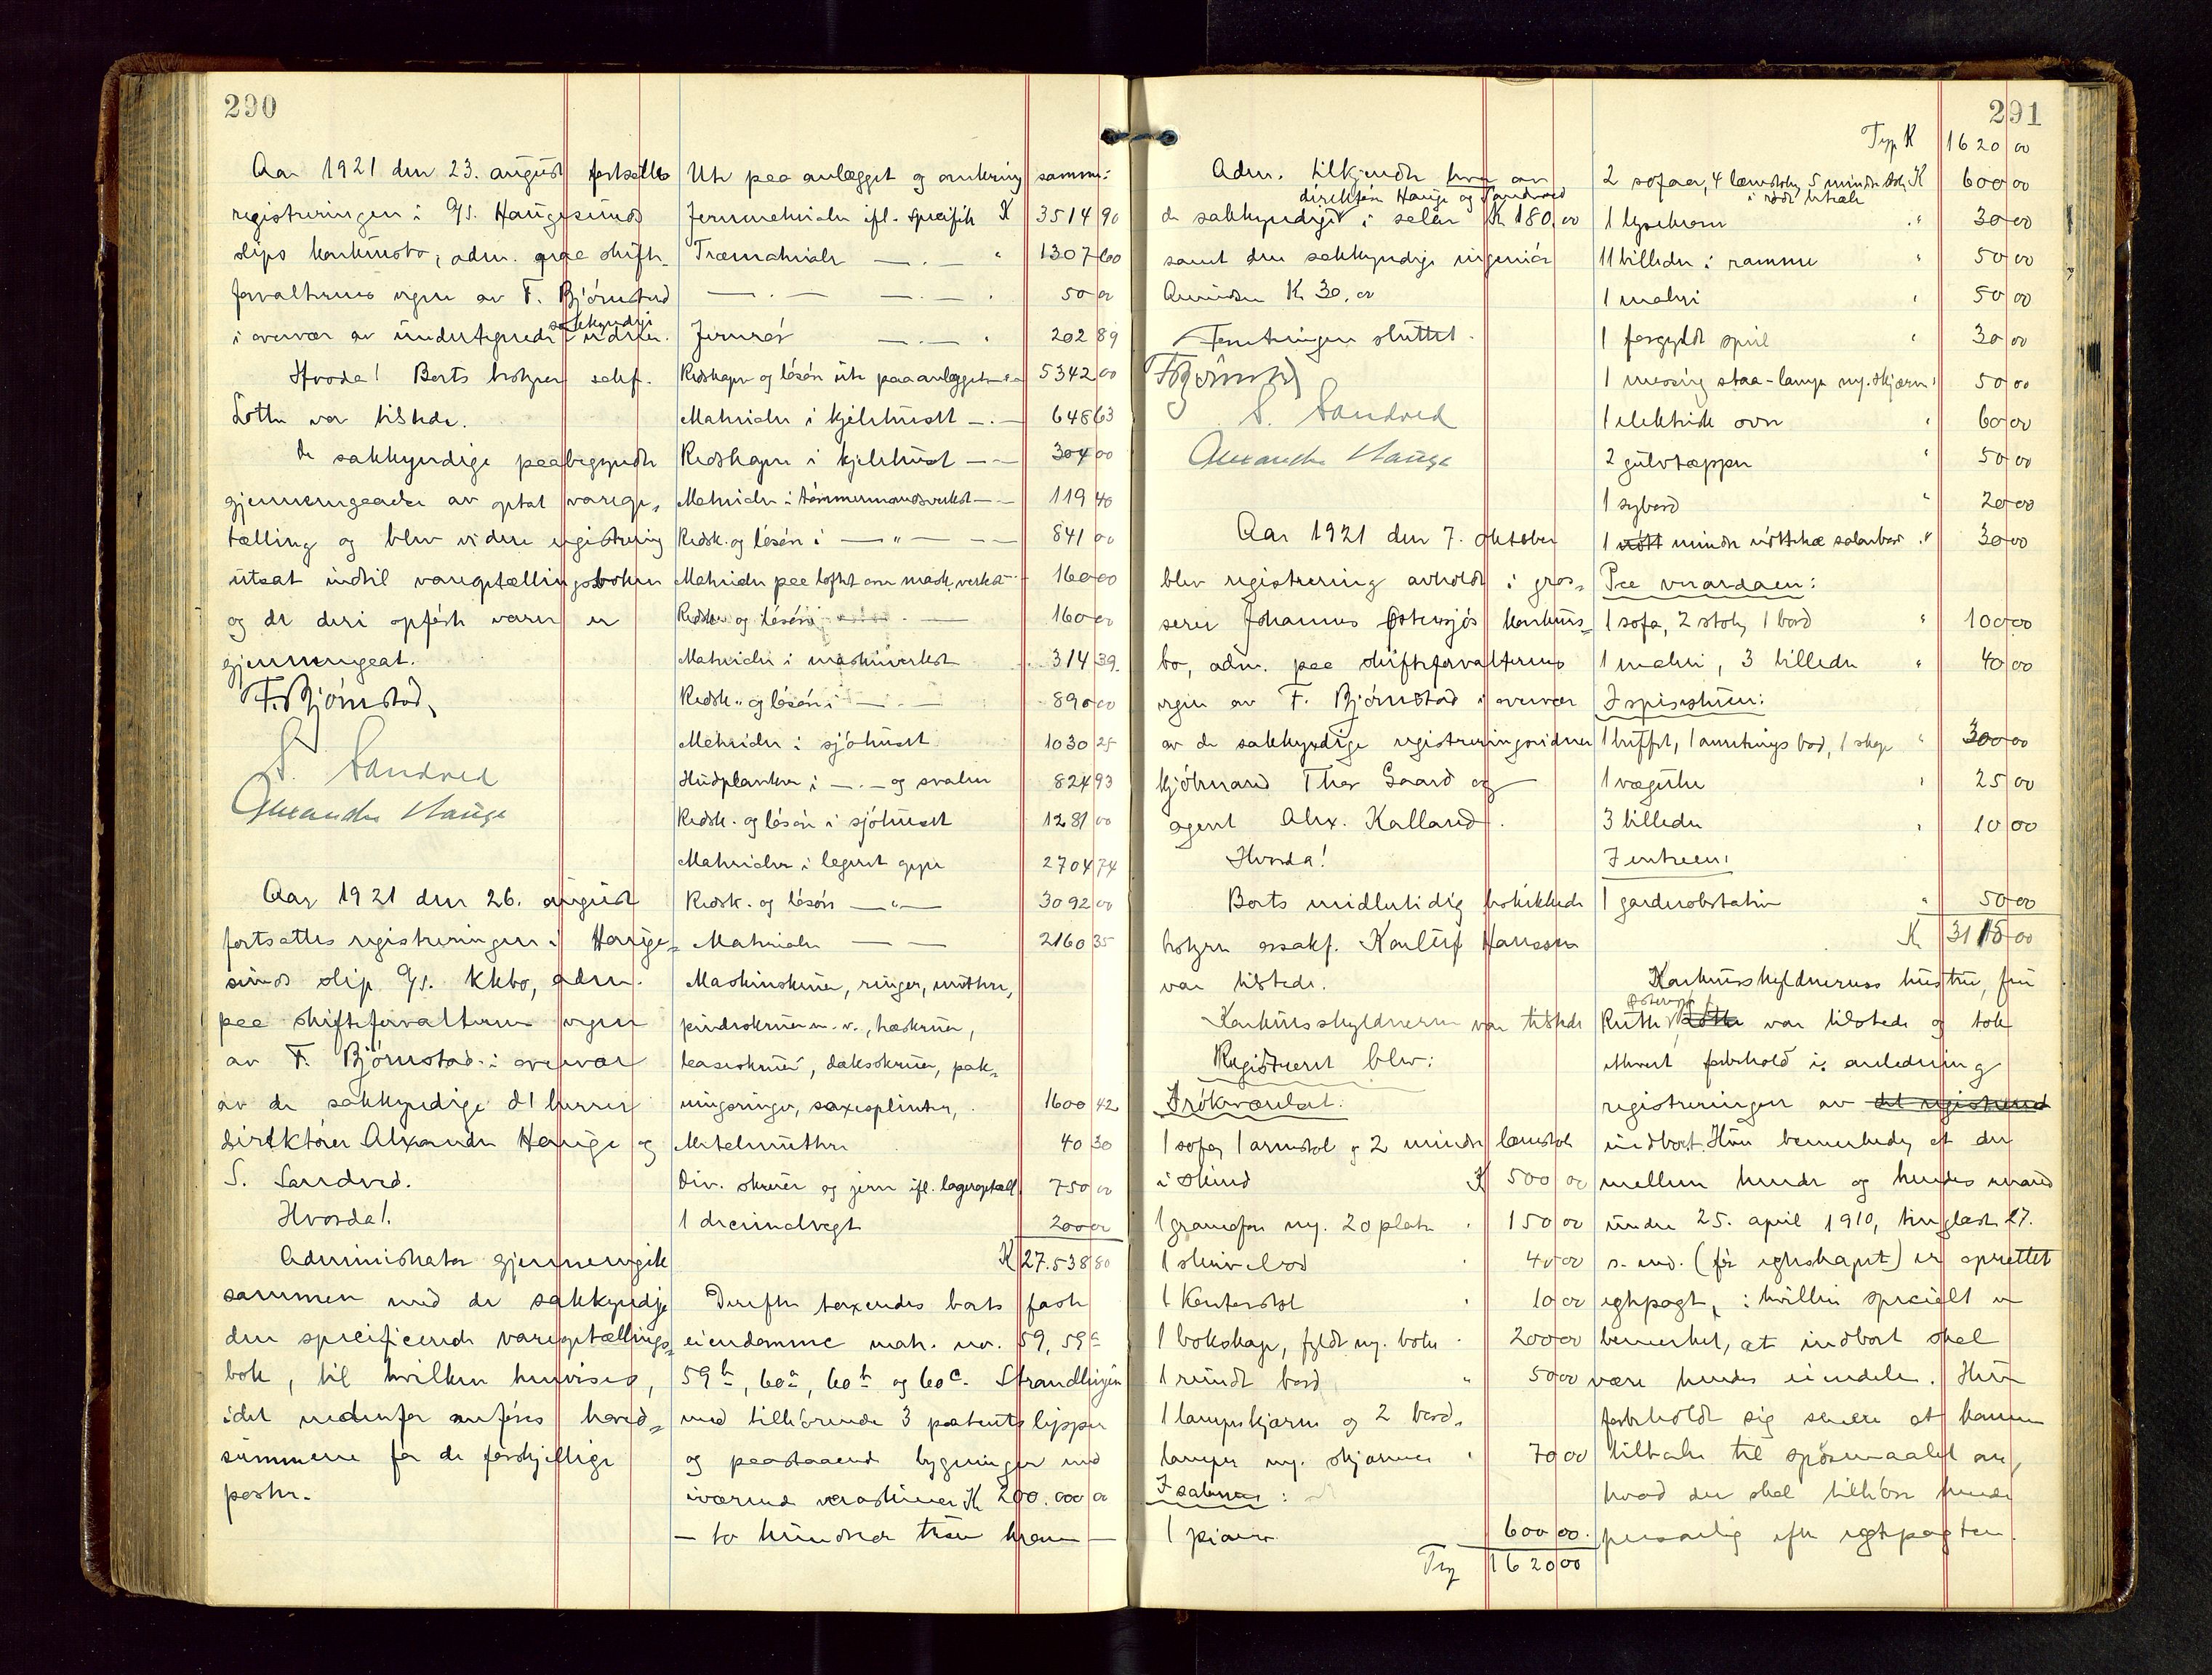 290
Aar 1921 den 23. august fortsattes
registreringen i A/S. Haugesunds
slips konkursbo, adm. paa skifte-
forvalterens vegne av F. Bjørnstad
i overvær av undertegnede sakkyndige vidner.
Hvorda! Boets bestyrer sakf.
Lothe var tilstede.
De sakkyndige paabegyndte
gjennemgaaelse av optat vareop-
tælling og blev videre registrering
utsat indtil vareoptællingsboken
og de deri opførte varer er
gjennemgaat.
F. Bjørnstad,
S. Sandved
Alexander Hauge
Aar 1921 den 26. august
fortsattes registreringen i Hauge-
sunds slip A/S. kkbo, adm.
paa skifteforvalterens vegne
av F. Bjørnstad i overvær
av de sakkyndige d'herrer
direktører Alexander Hauge og
S. Sandved.
Hvorda!
Administrator gjennemgik
sammen med de sakkyndige
den specificerede vareoptællings-
bok, til hvilken henvises,
idet nedenfor anføres hoved-
summene for de forskjellige
poster.
Ute paa anlægget og omkring samme:
Jernmaterialer ifl. specifik K 3514 90
Træmaterialer — . — " 1307 60
— . — — . — . 50 00
Jernrør — . — " 202 89
Redskaper og løsøre ute paa anlægget — " — 5342 00
Materialer i kjelehuset — . — 648 63
Redskaper i kjelehuset — — 304 00
Materialer i tømmermandsverkst — — 119 40
Redsk. og løsøre i — " — — — 841 00
Materialer paa loftet over mask. verkst — 160 00
Redsk. og løsøre — . — 160 00
Materialer i maskinverkst 314 39
Redsk. og løsøre i — . — 890 00
Materialer i sjøhuset 1030 25
Hudplanker i — . — og svalen 824 93
Redsk. og løsøre i sjøhuset 1281 00
Materialer i lageret oppe 2704 74
Redsk. og løsøre — " — 3092 00
Materialer — — 2160 35
Maskinskruer, ringer, muttere,
pindeskruer m. v., træskruer,
leaseskruer, dæksskruer, pak-
ningsringer, saxesplinter, 1600 42
Metalmuttere 40 30
Div. skruer og jern ifl. lageroptæll. 750 00
1 decimalvegt 200 00
K 27.538 80
Derefter taxeredes boets faste
eiendomme matr. no. 59, 59a
59b, 60a, 60b og 60c. Strandlingen
med tilhørende 3 patentslipper
og paastaaende bygninger med
iværende maskiner K 200.000 00
— to hundrede tusen kroner —
291
Adm. tilkjendte hver av
direktører Hauge og Sandved
de sakkyndige i salær K 180,00
samt den sakkyndige ingeniør
Amundsen K 30,00
Forretningen sluttet.
F Bjørnstad
S. Sandved
Alexander Hauge
Aar 1921 den 7. oktober
blev registrering avholdt i gros-
serer Johannes Østensjøs konkurs-
bo, adm. paa skifteforvalterens
vegne av F. Bjørnstad i overvær
av de sakkyndige registreringsvidner
kjøbmand Thor Gaard og
agent Alex. Kalland.
Hvorda!
Boets midlertidig beskikkede
bestyrer ossakf. Konluf Hansson
var tilstede.
Konkursskyldneren var tilstede
Registreret blev:
I røkværelset:
1 sofa, 1 armstol og 2 mindre lænestole
i skind K 500 00
1 gramofon m. 20 plater " 150 00
1 skrivebord " 40 00
1 Kontorstol " 10 00
1 bokskap, fyldt m. bøker " 200 00
1 rundt bord " 50 00
1 lampeskjærm og 2 bord-
lamper m. skjærmer " 70 00
I salonen:
1 piano 600 00
Trp 1620 00
Trp K 1620 00
2 sofaer, 4 lænestole, 5 mindre stole K 600 00
i rødt betræk
1 lysekrone " 30 00
11 billeder i ramme " 50 00
1 maleri " 50 00
1 forgyldt speil " 30 00
1 messing staa-lampe m. skjærm " 50 00
1 elektrisk ovn " 60 00
2 gulvtæpper " 50 00
1 sybord " 20 00
1 nøtt mindre nøttetræ salonbord " 30 00
Paa verandaen:
1 sofa, 2 stoler, 1 bord " 100 00
1 maleri, 3 billeder " 40 00
I spisestuen:
1 buffet, 1 anretnings bord, 1 skap " 300 00
1 vægur " 25 00
3 billeder " 10 00
I entreen:
1 garderobestativ " 50 00
K 3115 00
Konkursskyldnerens hustru, fru
Ruth Østensjø var tilstede og tok
ethvert forbehold i anledning
registreringen av det registrerte
indbo. Hun bemerkede, at der
mellem hende og hendes mand
under 25. april 1910, tinglæst 27.
s. md. (før egteskapet) er oprettet
egtepagt, i hvilken specielt er
bemerket, at indboet skal
være hendes eiendele. Hun
forbeholdt sig senere at komme
tilbake til spørsmaalet om,
hvad der skal tilhøre hende
personlig efter egtepagten.